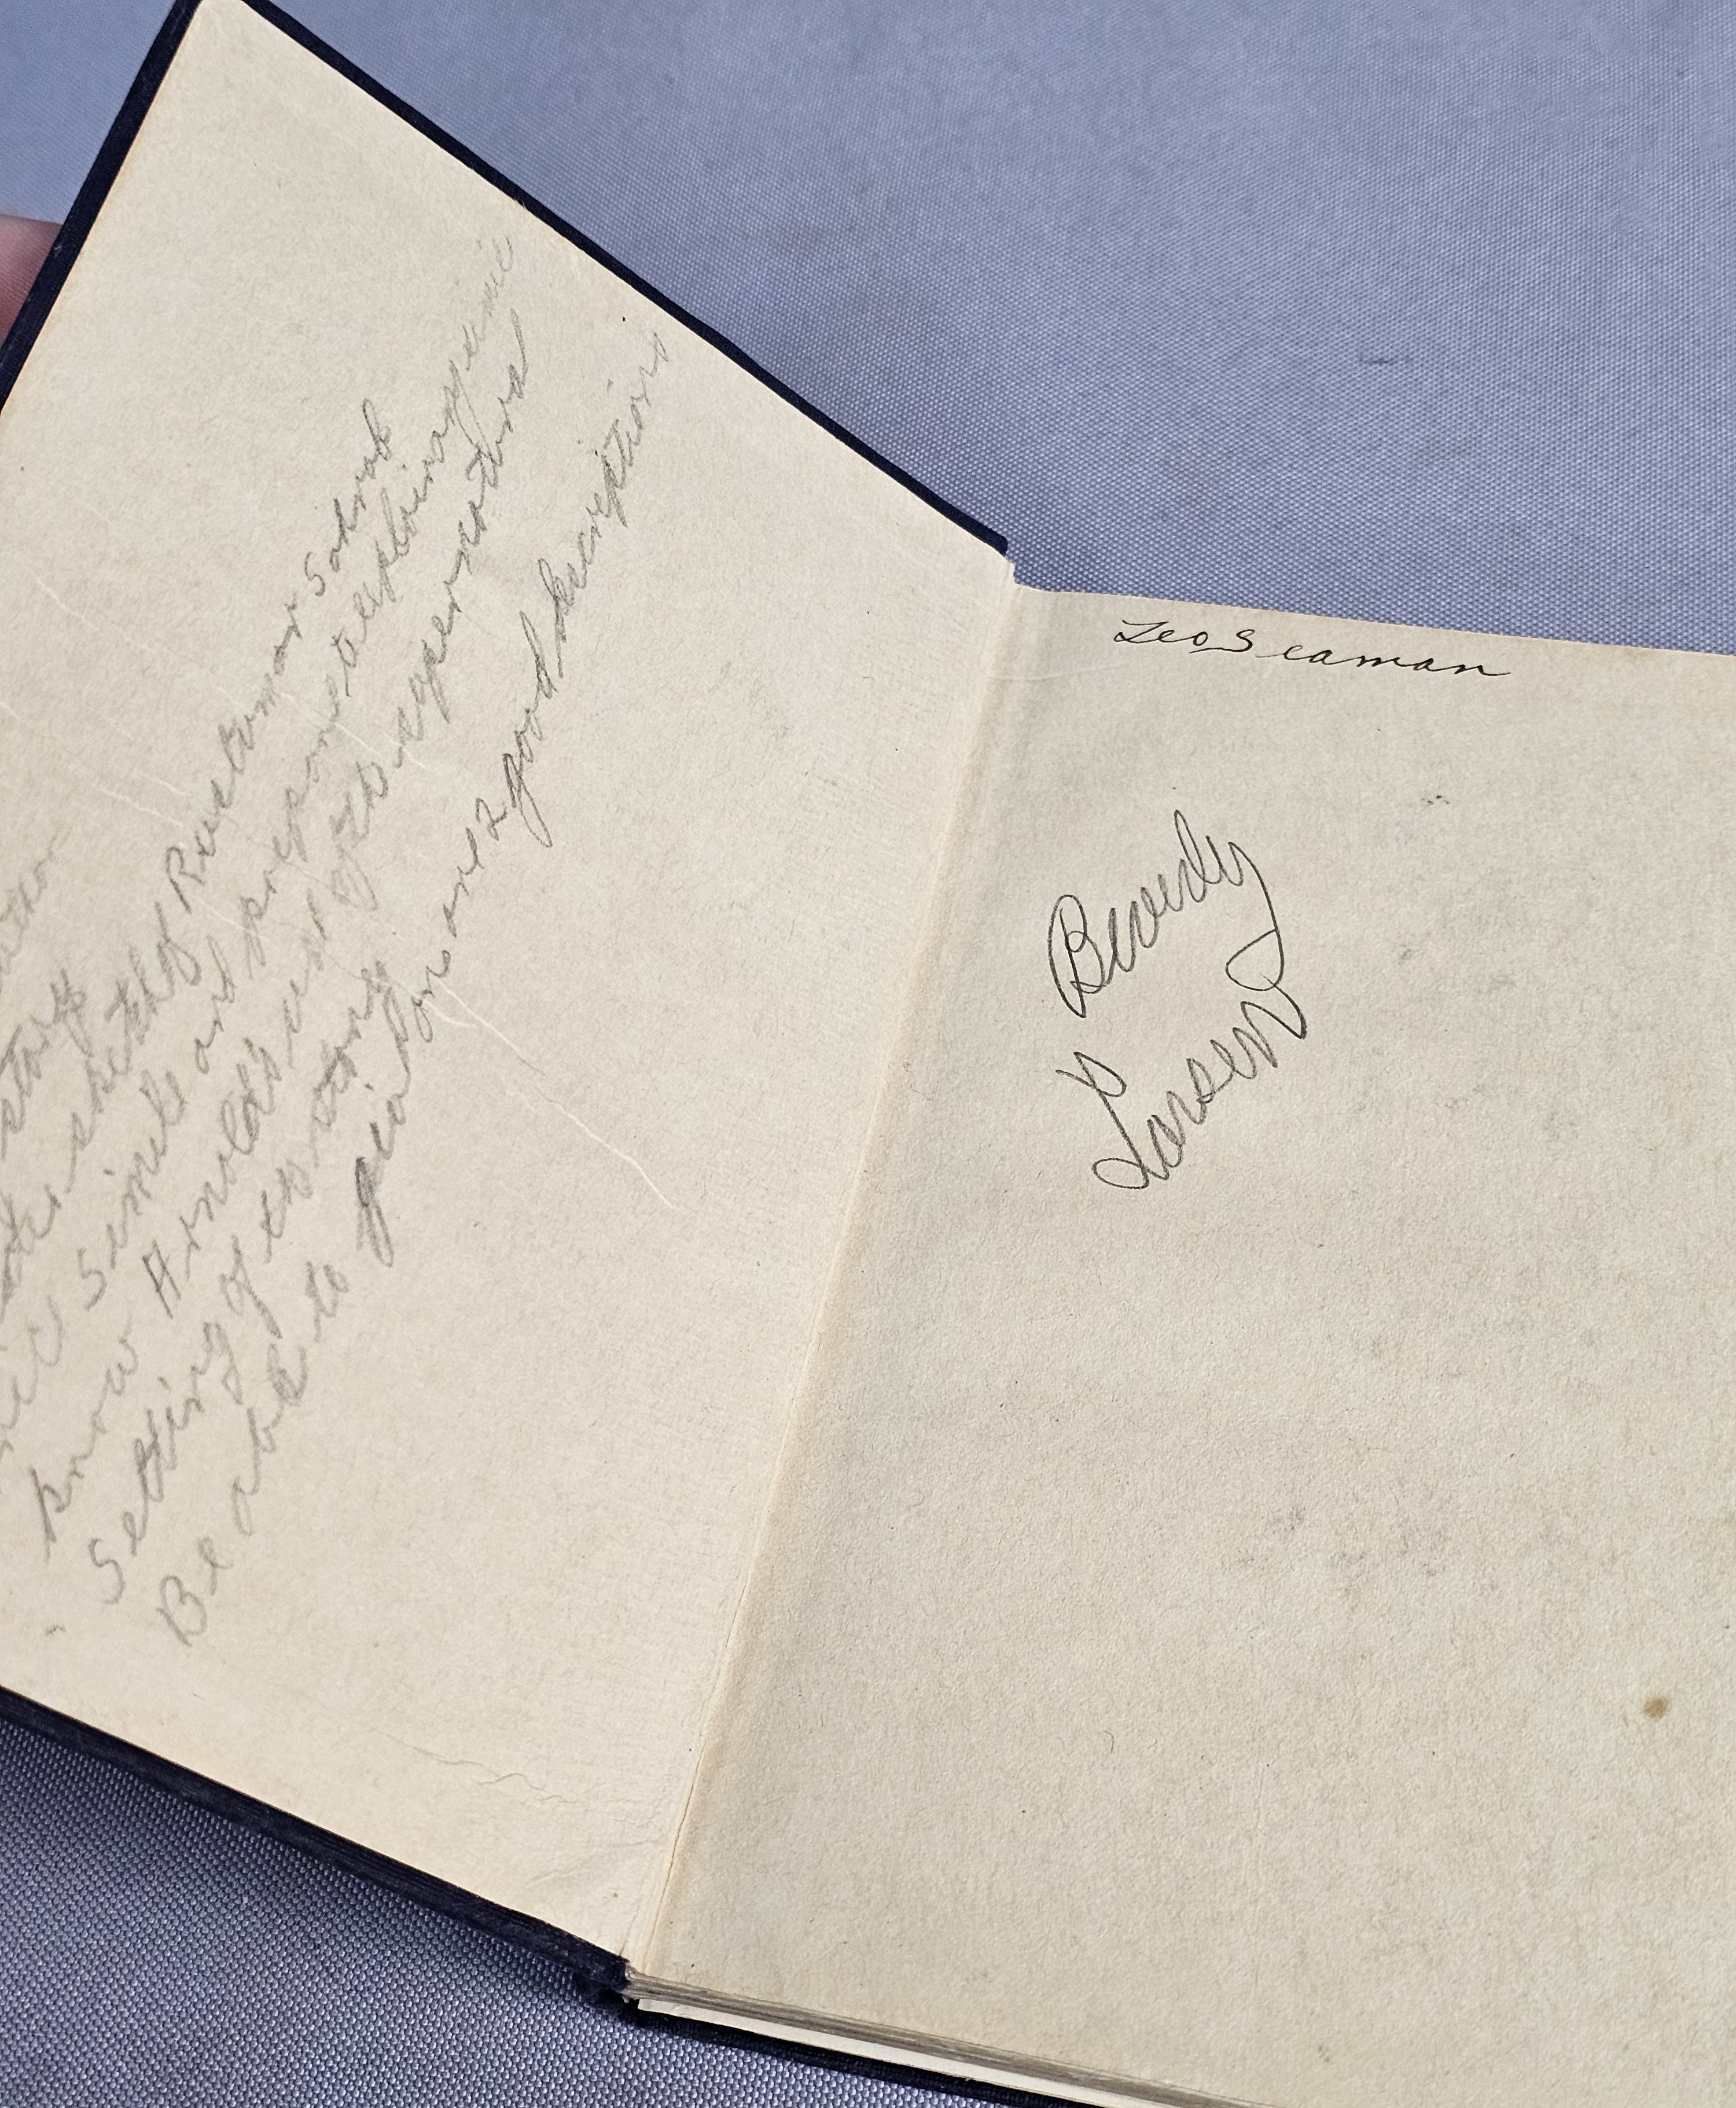 story
sketch of Rustum or Sohrab
Simile and prepare to explain any simile
Know Arnold's use of the supernatural
Setting of the story
Be able to find one or 2 good descriptions
Leo Seaman
Beverly
Larsen